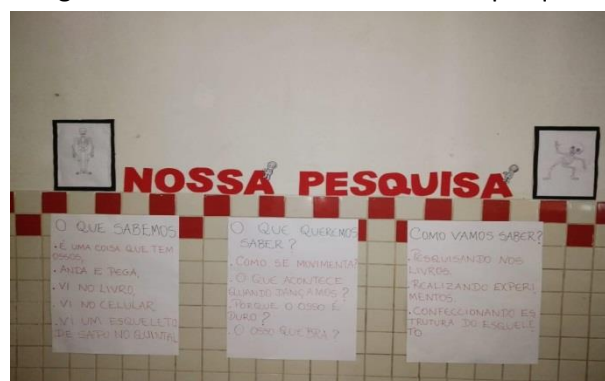 NOSSA PESQUISA
O QUE SABEMOS
• É UMA COISA QUE TEM
OSSOS,
• ANDA E PEGA,
• VI NO LIVRO,
• VI NO CELULAR
• VI UM ESQUELETO
DE SAPO NO QUINTAL
O QUE QUEREMOS
SABER?
• COMO SE MOVIMENTA?
• O QUE ACONTECE
QUANDO DANÇAMOS?
• PORQUE O OSSO É
DURO?
• O OSSO QUEBRA?
COMO VAMOS SABER?
• PESQUISANDO NOS
LIVROS.
• REALIZANDO EXPERI
MENTOS.
• CONFECCIONANDO ES
TRUTURA DO ESQUELE
TO